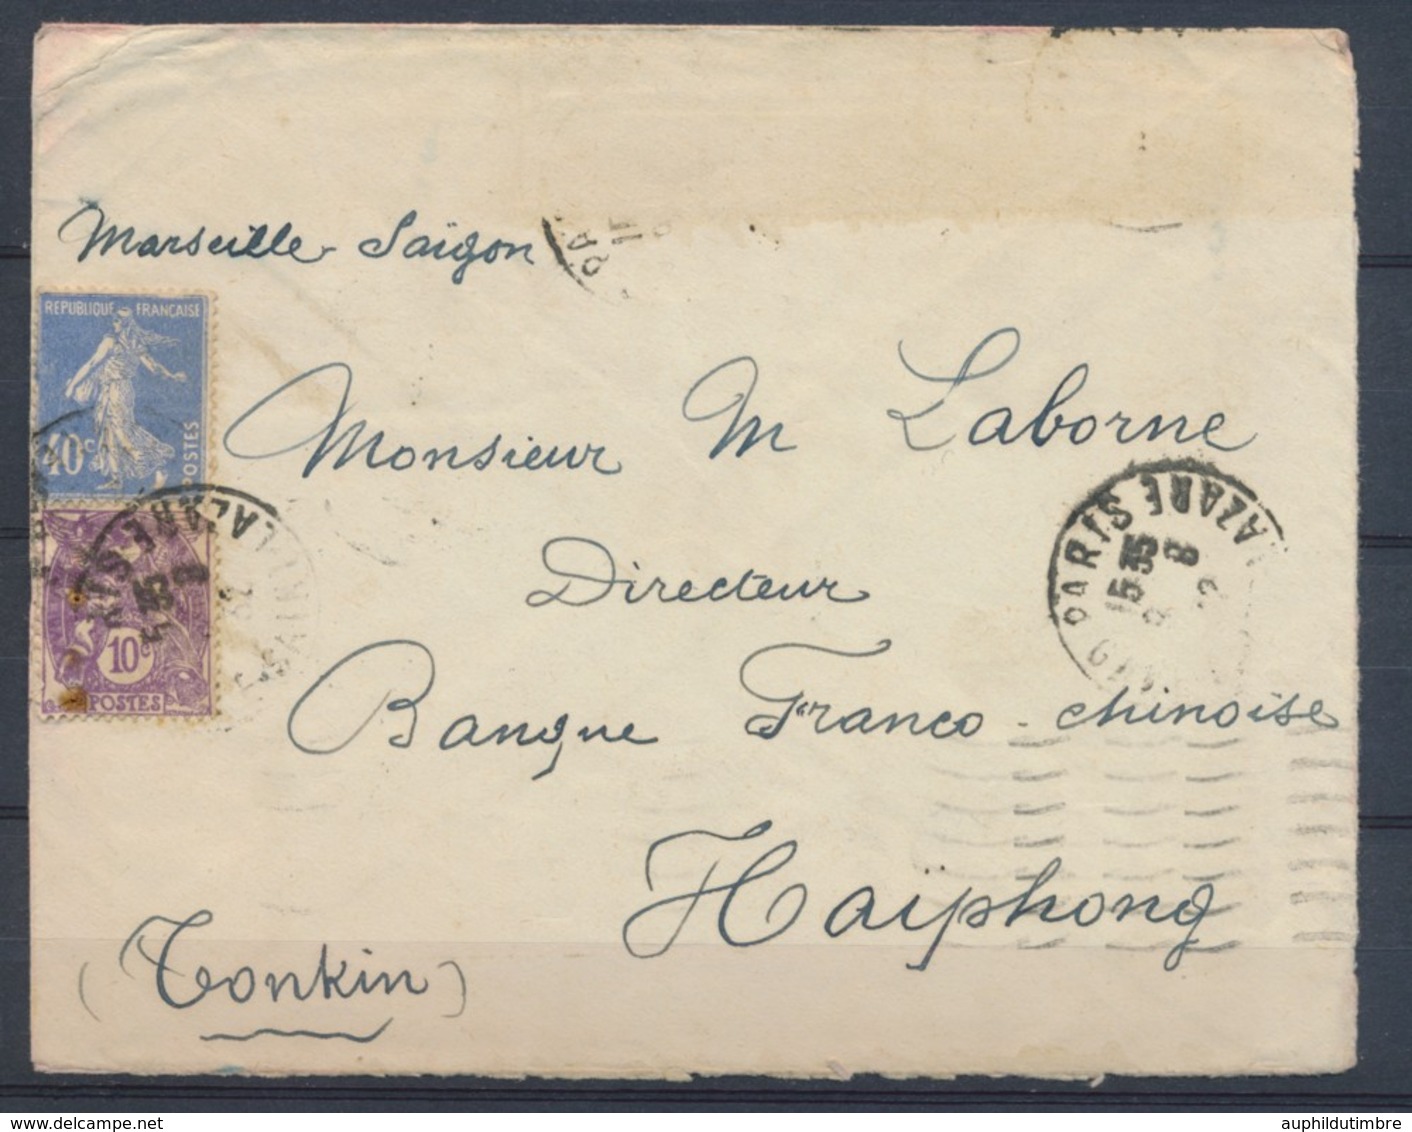 Marseille-Saïgon
REPUBLIQUE FRANÇAISE
40c
POSTES
10c
POSTES
Monsieur M Laborne
Directeur
PARIS
LAZARE
15 35
8
Banque Franco-chinoise
Haïphong
(Tonkin)
auphildutimbre